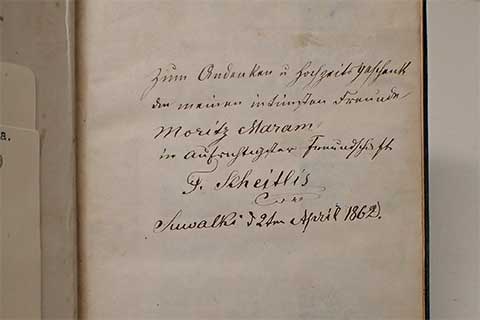 a.
)
Zum Andenken u Hochzeits Geschenk
den meinen intimsten Freunde
Moritz Maram
in Aufrichtigster Freundschaft
F. Scheitlis
Suwalki d 2ten April 1862.